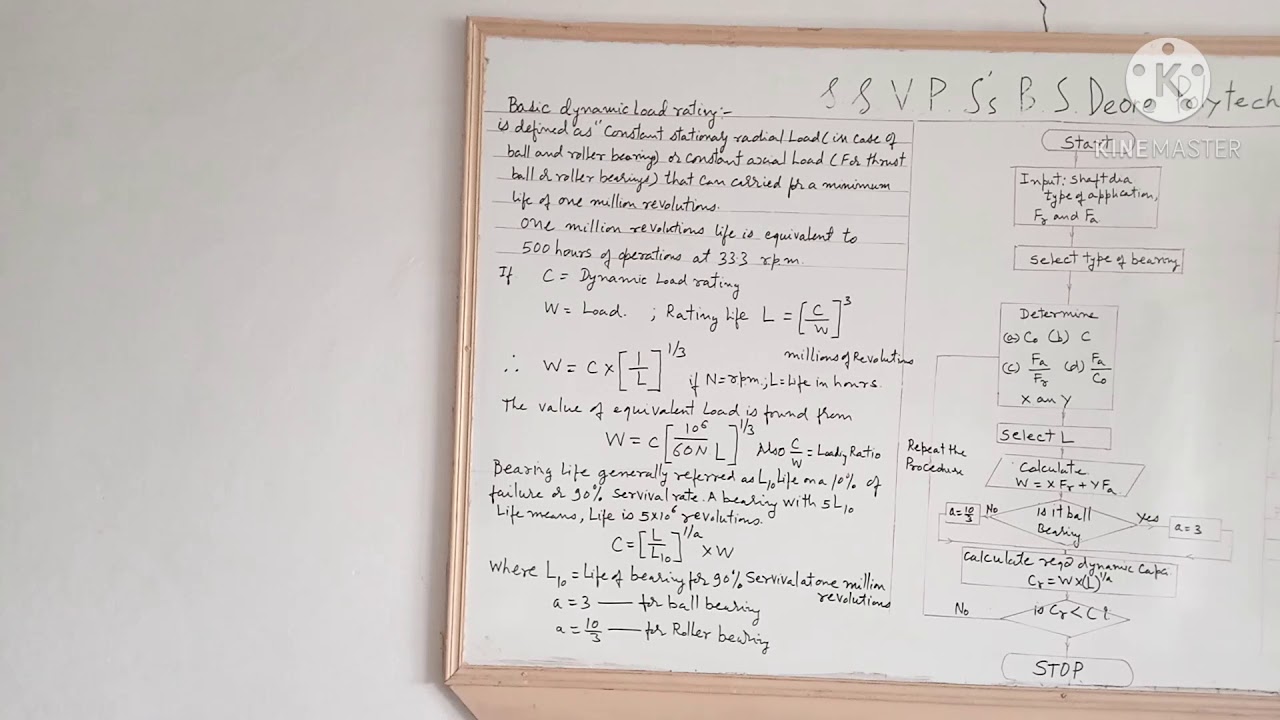 S S V P. S's B. S. Deore Polytech
Basic dynamic Load rating:-
is defined as "Constant stationary radial Load (in case of
ball and roller bearing) or constant axial Load (For thrust
ball or roller bearings) that can carried for a minimum
life of one million revolutions.
One million revolutions life is equivalent to
500 hours of operations at 33.3 rpm.
If C = Dynamic Load rating
W = Load. ; Rating life L = [C/W]^3
millions of Revolutions
∴ W = C × [1/L]^1/3 if N = rpm; L = Life in hours.
The value of equivalent Load is found from
W = C [10^6/60N L]^1/3 Also C/W = Loading Ratio
Bearing Life generally referred as L10 Life on a 10% of
failure or 90% servival rate. A bearing with 5L10
Life means, Life is 5×10^6 revolutions.
C = [L/L10]^1/a × W
Where L10 = Life of bearing for 90% Servival at one million
revolutions
a = 3 — for ball bearing
a = 10/3 — for Roller bearing
Start
Input: shaft dia
type of application,
Fr and Fa
Select type of bearing
Determine
(a) C0 (b) C
(c) Fa/Fr (d) Fa/C0
X an Y
Select L
Repeat the
Procedure
Calculate
W = X Fr + Y Fa
is it ball
Bearing
No
a = 10/3
Yes
a = 3
Calculate reqd dynamic Capa
Cr = W × (L)^1/a
is Cr < C ?
No
STOP
KINEMASTER